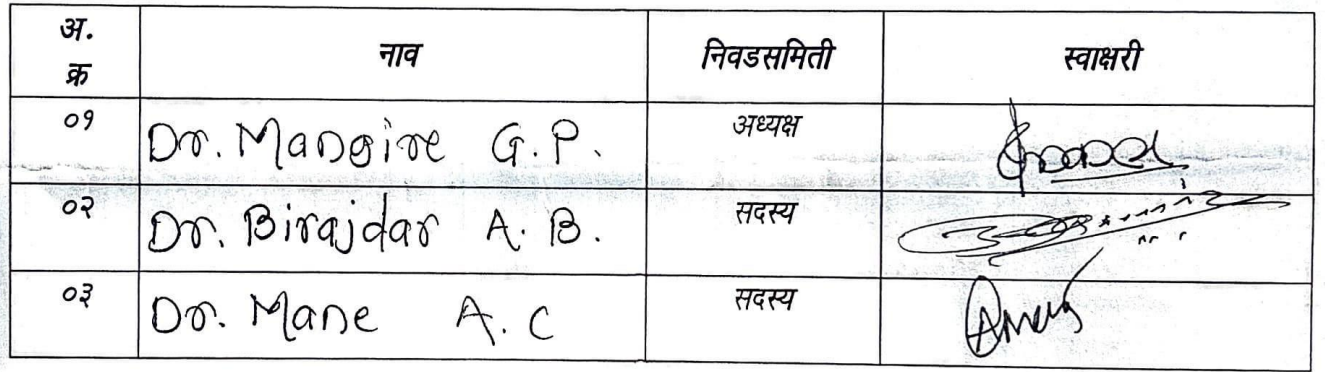 अ. क्र नाव निवडसमिती स्वाक्षरी
०१ Dr. Mangire G.P. अध्यक्ष
०२ Dr. Birajdar A. B. सदस्य
०३ Dr. Mane A. C सदस्य